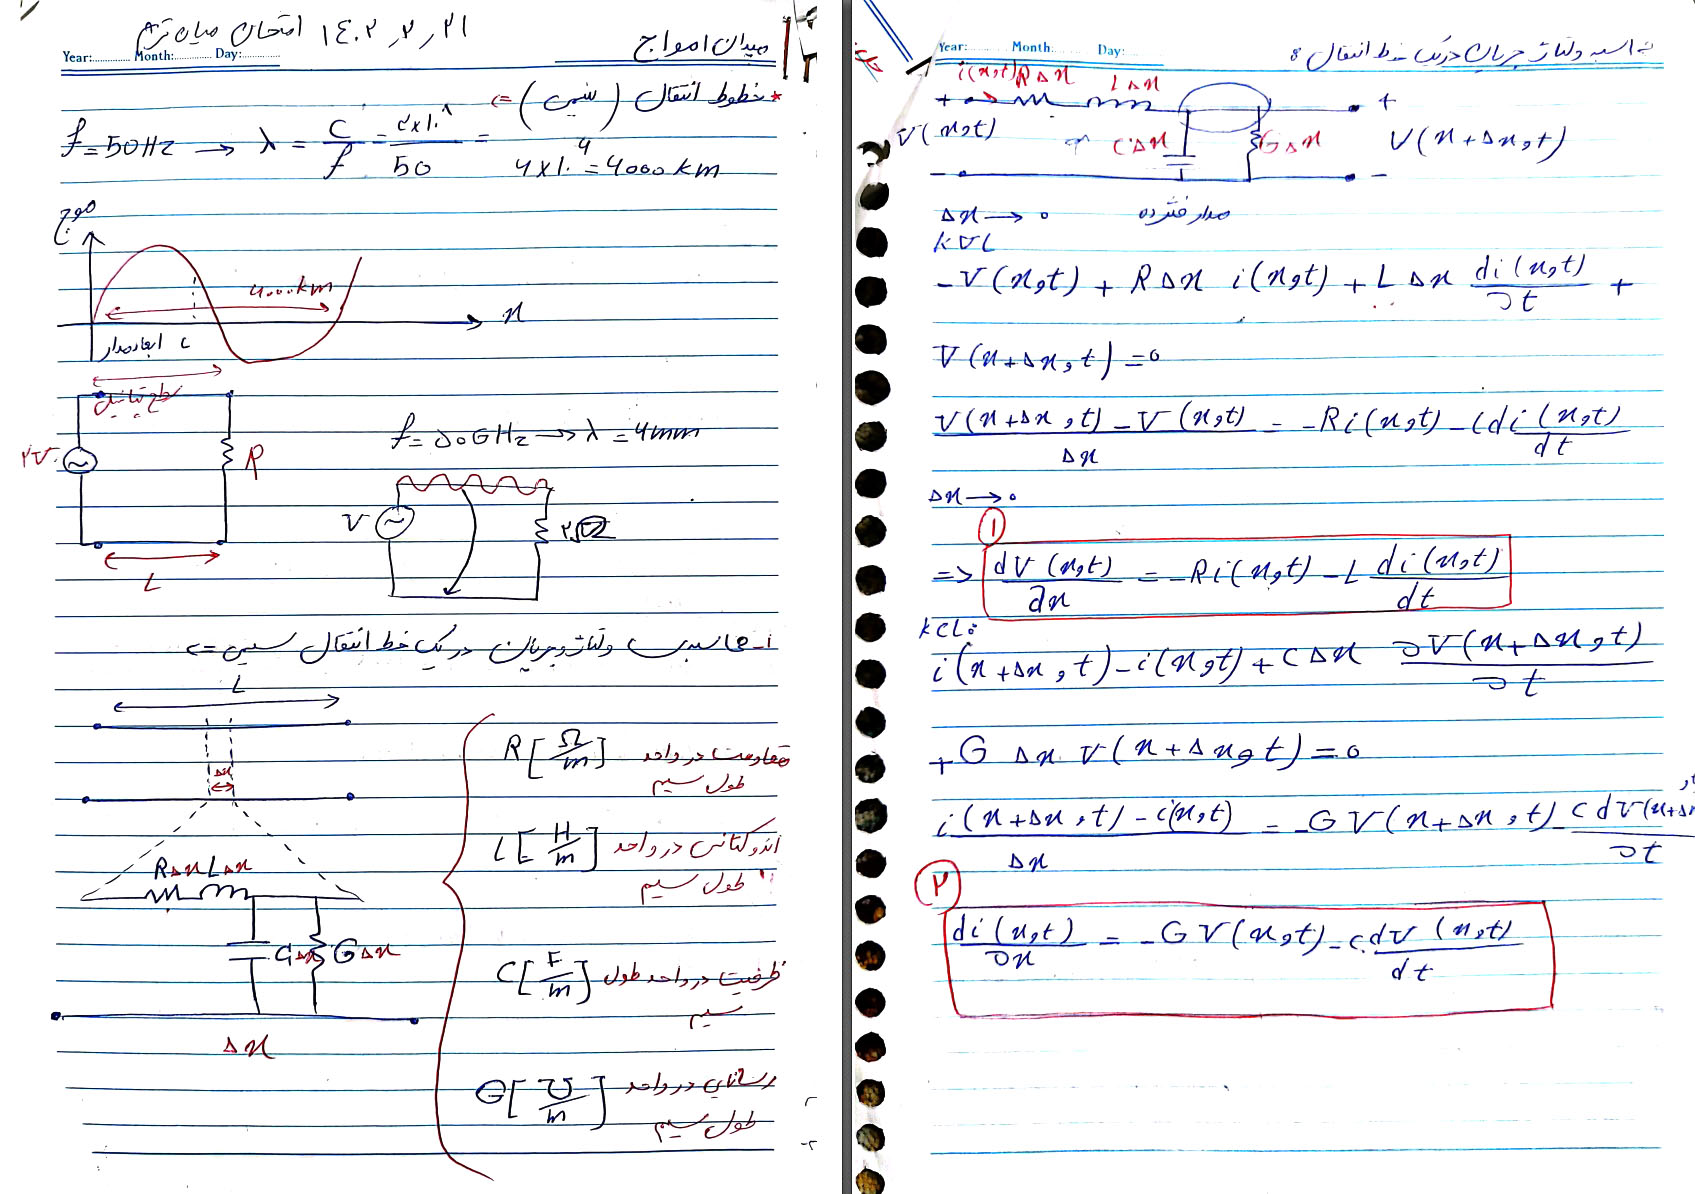 میدان امواج
امتحان میان ترم ۱۴۰۲٫۲٫۲۱
Year: Month: Day:
* خطوط انتقال (سیمی) <=
f=50Hz → λ = C/f = ۲×۱۰^۸/50 = 4×۱۰^۶ = 4000 km
موج
۴۰۰۰km
x
ابعاد مدار L
سطح پتانسیل
۲V
R
L
f= ۵۰GHz → λ = 4mm
V
۲۵Ω
i_ محاسبه ولتاژ و جریان در یک خط انتقال سیمی <=
L
Δx
RΔx LΔx
CΔx GΔx
Δx
R[Ω/m] مقاومت در واحد
طول سیم
L[H/m] اندوکتانس در واحد
طول سیم
C[F/m] ظرفیت در واحد طول
سیم
G[℧/m] رسانایی در واحد
طول سیم
Year: Month: Day:
محاسبه ولتاژ جریان در یک خط انتقال :
i(x,t) RΔx LΔx
+ +
V(x,t) CΔx GΔx V(x+Δx,t)
- -
Δx → 0 مدار فشرده
KVL
-V(x,t) + RΔx i(x,t) + LΔx di(x,t)/∂t +
V(x+Δx,t) =0
V(x+Δx,t) - V(x,t)/Δx = -Ri(x,t) - L di(x,t)/dt
Δx → 0
①
=> dV(x,t)/∂x = -Ri(x,t) - L di(x,t)/dt
KCL:
i(x+Δx,t) - i(x,t) + CΔx ∂V(x+Δx,t)/∂t
+G Δx V(x+Δx,t) = 0
i(x+Δx,t) - i(x,t)/Δx = -GV(x+Δx,t) - C dV(x+Δx/∂t
②
di(x,t)/∂x = -GV(x,t) - C dV(x,t)/dt